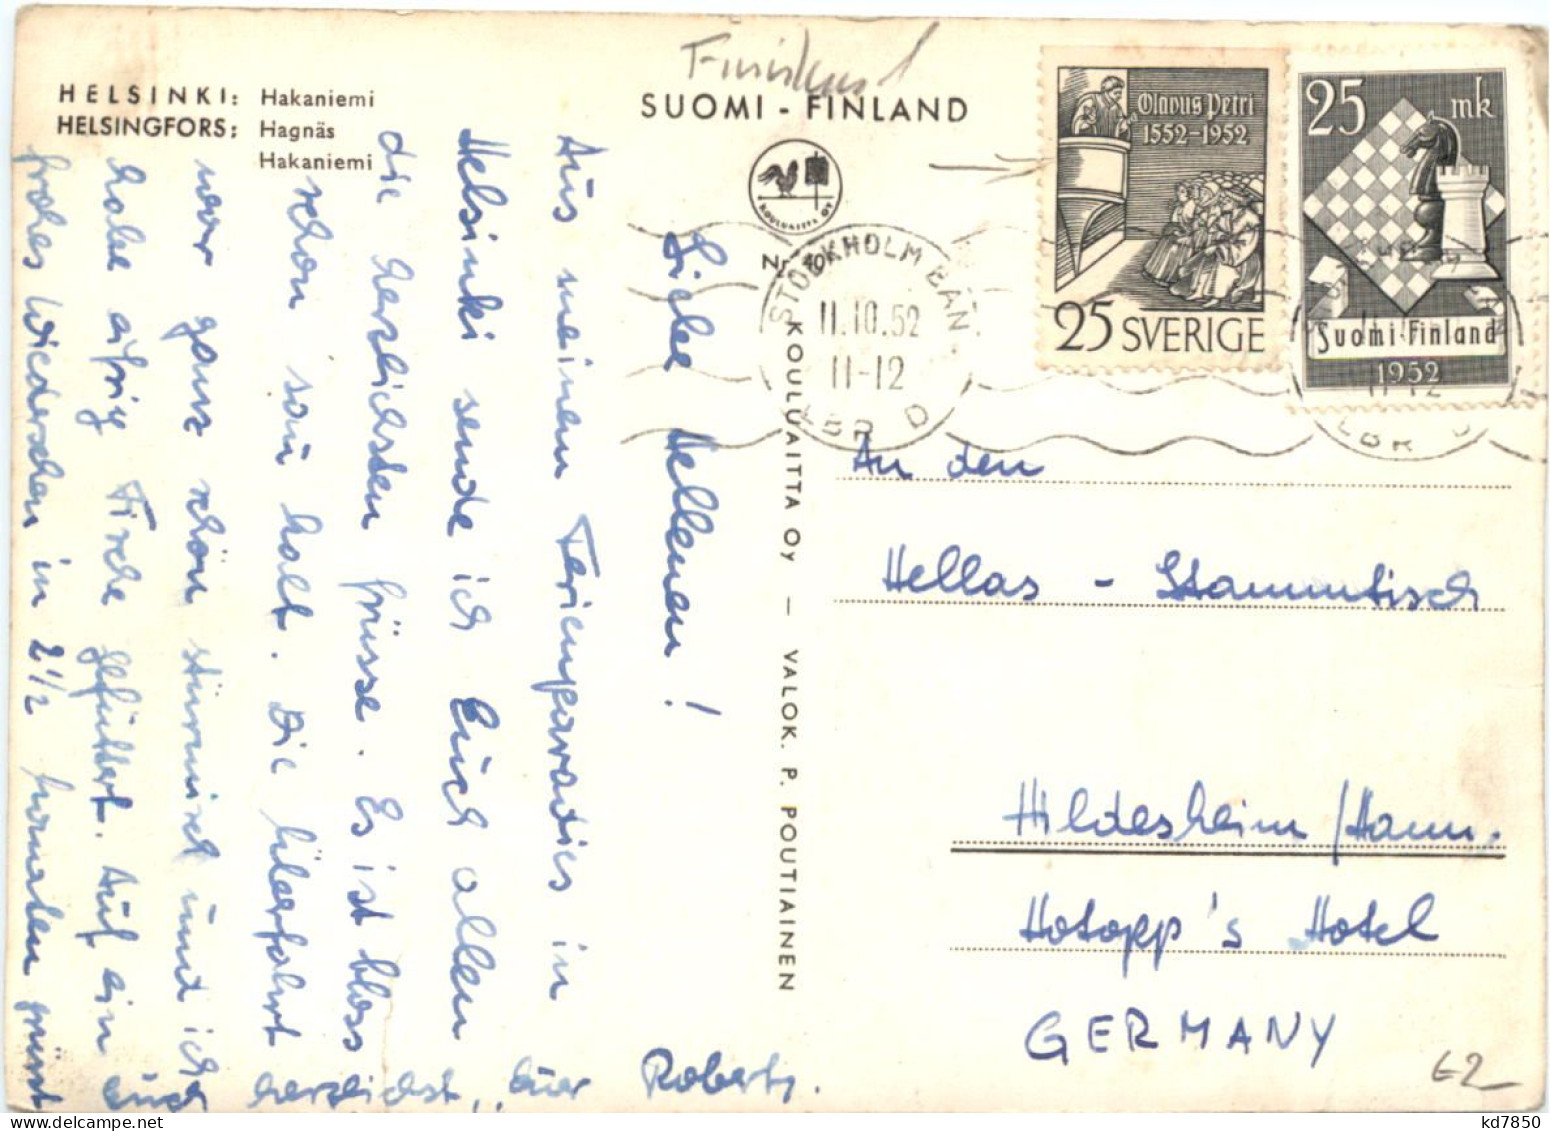 HELSINKI: Hakaniemi
HELSINGFORS: Hagnäs
Hakaniemi
SUOMI - FINLAND
KOULUAITTA OY
KOULUAITTA OY — VALOK. P. POUTIAINEN
Olavus Petri
1552-1952
25 SVERIGE
25 mk
Suomi-Finland
1952
STOCKHOLM BAN
11.10.52
11-12
LBR D
Liebe Hellenen!
Aus meinem Ferienparadies in
Helsinki sende ich Euch allen
die herzlichsten Grüsse. Es ist bloss
schon sau kalt. Die Überfahrt
war ganz schön stürmisch und ich
habe eifrig Fische gefüttert. Auf ein
frohes Wiedersehen in 2 1/2 Monaten grüsst
Euch herzlichst, Euer
An den
Hellas - Stammtisch
Hildesheim /Hann.
Hotopp's Hotel
GERMANY
62
kd7850